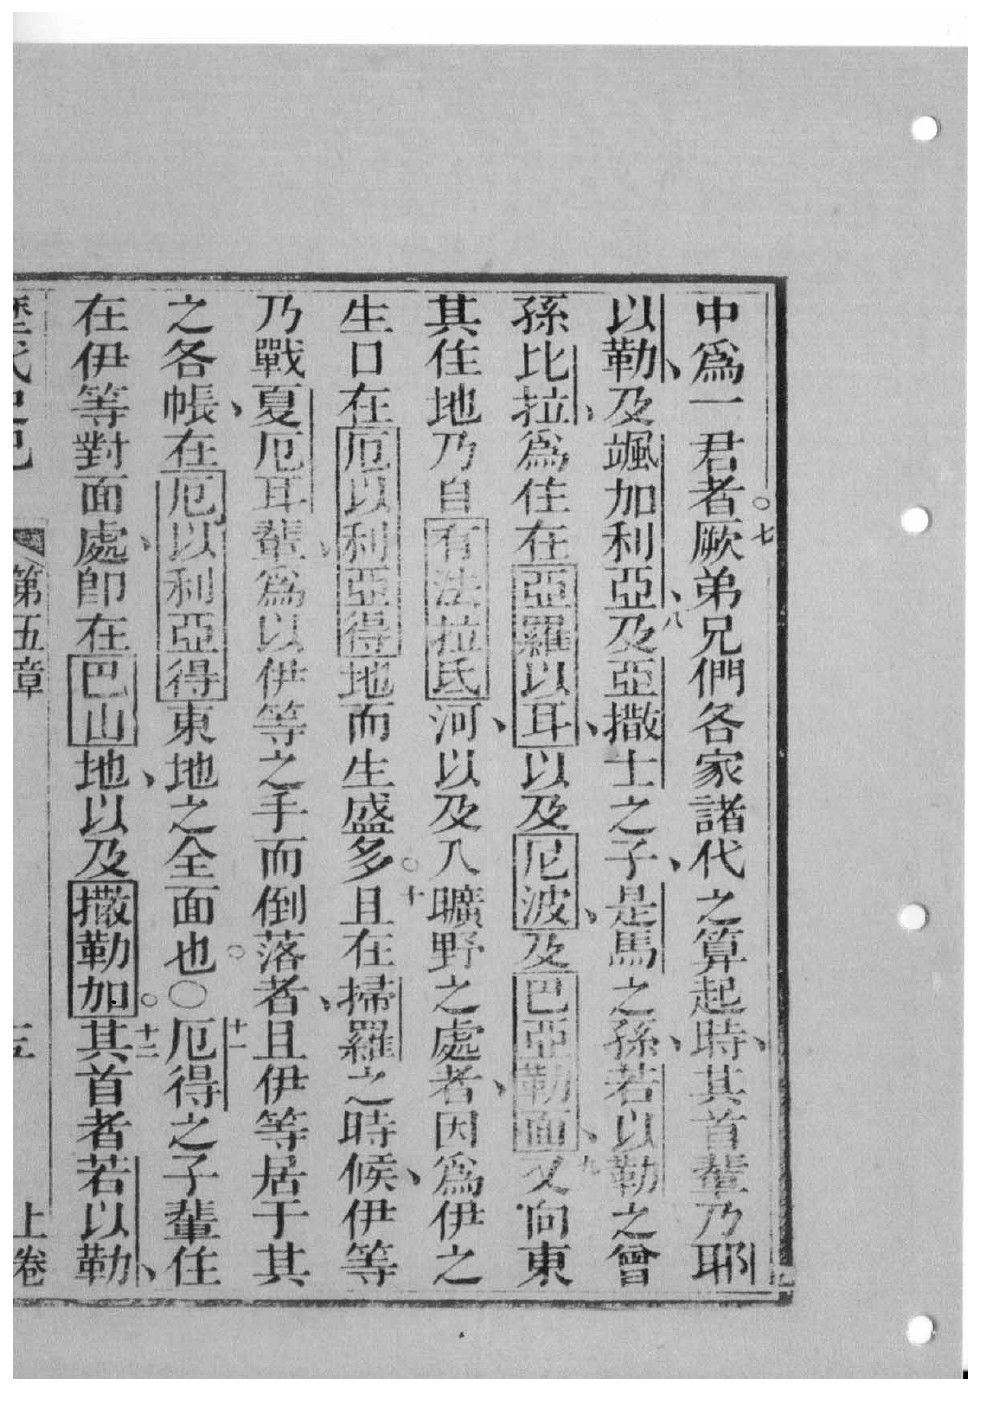 中爲一君者○七厥弟兄們各家諸代之算起時、其首輩乃耶
以勒、及颯加利亞、八及亞撒士之子、是馬之孫、若以勒之曾
孫比拉、爲住在亞羅以耳、以及尼波、及巴亞勒面、九又向東
其住地乃自有法拉氐河、以及入曠野之處者、因爲伊之
生口在厄以利亞得地而生盛多○十且在掃羅之時候、伊等
乃戰夏厄耳輩、爲以伊等之手而倒落者、且伊等居于其
之各帳、在厄以利亞得東地之全面也○〇十一厄得之子輩住
在伊等對面處、卽在巴山地、以及撒勒加○十二其首者若以勒、
歷代史記 第五章 五 上卷